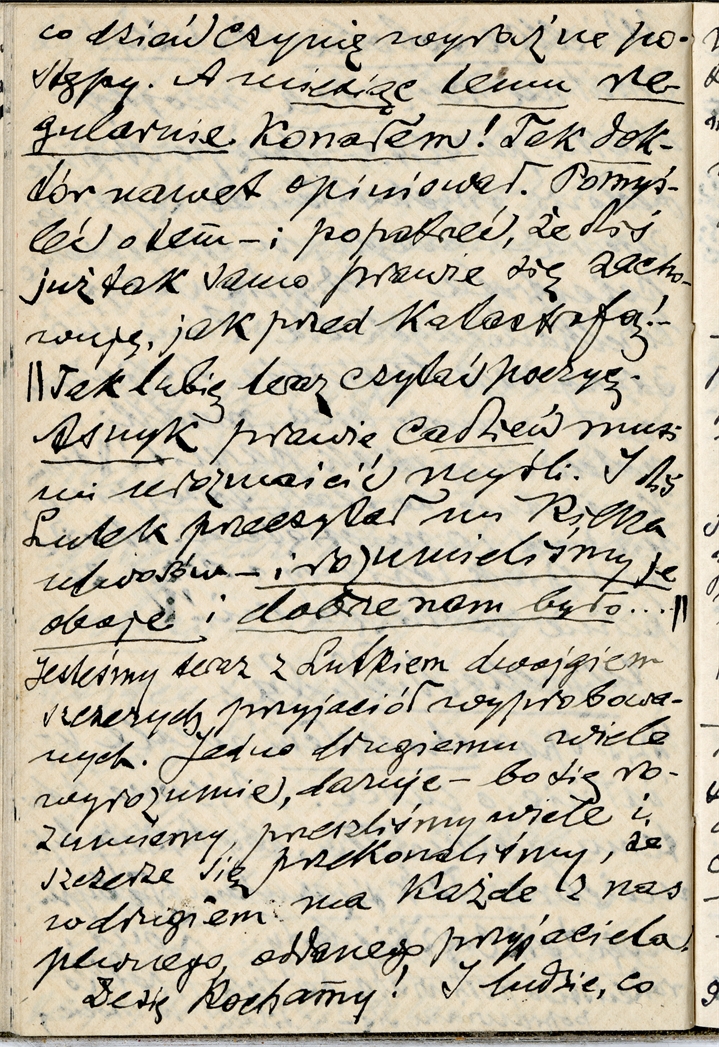 co dzień czynię wyraźne po-
stępy. A miesiąc temu re-
gularnie konałem! Tak dok-
tór nawet opiniował. Pomyś-
leć o tem – i popatrzeć, że dziś
już tak samo prawie się zacho-
wuję, jak przed katastrofą! –
|| Tak lubię teraz czytać poezyę.
Asnyk prawie codzień musi
mi urozmaicić myśli. I dziś
Lutek przeczytał mi kilka
utworów – i rozumieliśmy je
oboje i dobrze nam było... ||
Jesteśmy teraz z Lutkiem dwojgiem
szczerych przyjaciół wyprobowa-
nych. Jedno drugiemu wiele
wyrozumie, daruje – bo się ro-
zumiemy, przeszliśmy wiele i
szczerze się przekonaliśmy, że
w drugiem ma każde z nas
pewnego, oddanego przyjaciela.
Że się kochamy! I ludzie, co